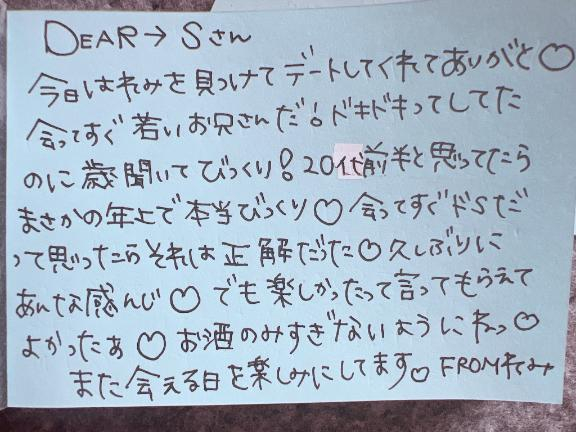 DEAR→ Sさん
今日はれみを見つけてデートしてくれてありがと♡
会ってすぐ若いお兄さんだ!ドキドキってしてた
のに歳聞いてびっくり!20代前半と思ってたら
まさかの年上で本当びっくり♡会ってすぐドSだ
って思ったらそれは正解だった♡久しぶりに
あんな感んじ♡でも楽しかったって言ってもらえて
よかったぁ♡お酒のみすぎないようにねっ♡
また会える日を楽しみにしてます♡FROMれみ